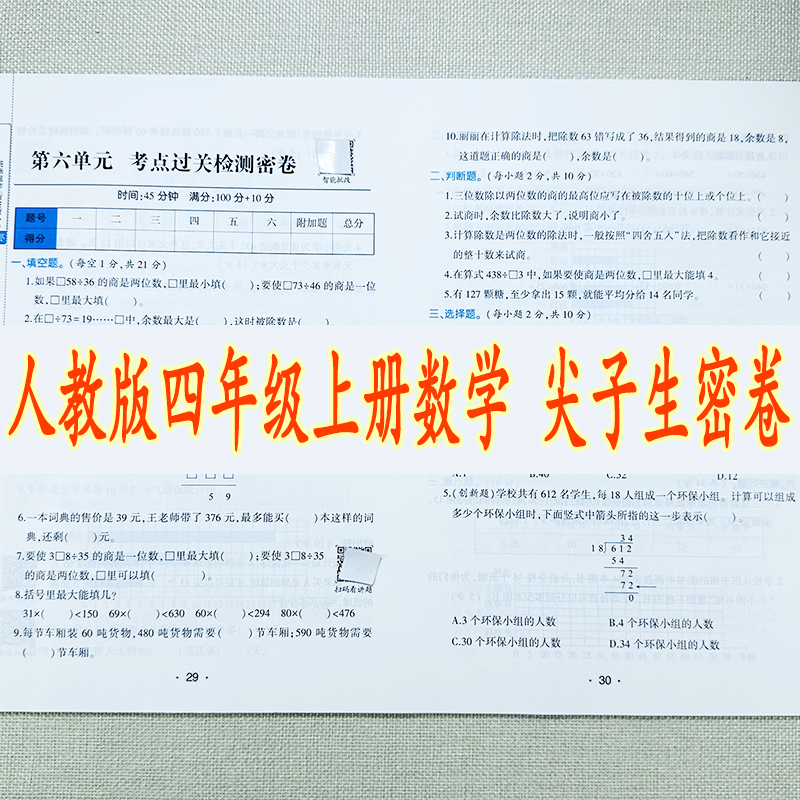 第六单元 考点过关检测密卷
智能批改
时间:45分钟 满分:100分+10分
题号 一 二 三 四 五 六 附加题 总分
得分
一、填空题。(每空1分,共21分)
1.如果□58÷36的商是两位数,□里最小填( );要使□73÷46的商是一位
数,□里最大填( )。
2.在□÷73=19……□中,余数最大是( ),这时被除数是( )。
人教版四年级上册数学 尖子生密卷
□□□
5 9
6.一本词典的售价是39元,王老师带了376元,最多能买( )本这样的词
典,还剩( )元。
7.要使3□8÷35的商是一位数,□里最大填( );要使3□8÷35
的商是两位数,□里可以填( )。
扫码看讲题
8.括号里最大能填几?
31×( )<150 69×( )<630 60×( )<294 80×( )<476
9.每节车厢装60吨货物,480吨货物需要( )节车厢;590吨货物需要
( )节车厢。
·29·
10.丽丽在计算除法时,把除数63错写成了36,结果得到的商是18,余数是8,
这道题正确的商是( ),余数是( )。
二、判断题。(每小题2分,共10分)
1.三位数除以两位数的商的最高位应写在被除数的十位上或个位上。( )
2.试商时,余数比除数大了,说明商小了。( )
3.计算除数是两位数的除法时,一般按照“四舍五入”法,把除数看作和它接近
的整十数来试商。( )
4.在算式438÷□3中,如果要使商是两位数,□里最大能填4。( )
5.有127颗糖,至少拿出15颗,就能平均分给14名同学。( )
三、选择题。(每小题2分,共10分)
A.1 B.40 C.32 D.12
5.(创新题)学校共有612名学生,每18人组成一个环保小组。计算可以组成
多少个环保小组时,下面竖式中箭头所指的这一步表示( )。
34
18)612
54
72
72←
0
A.3个环保小组的人数 B.4个环保小组的人数
C.30个环保小组的人数 D.34个环保小组的人数
·30·